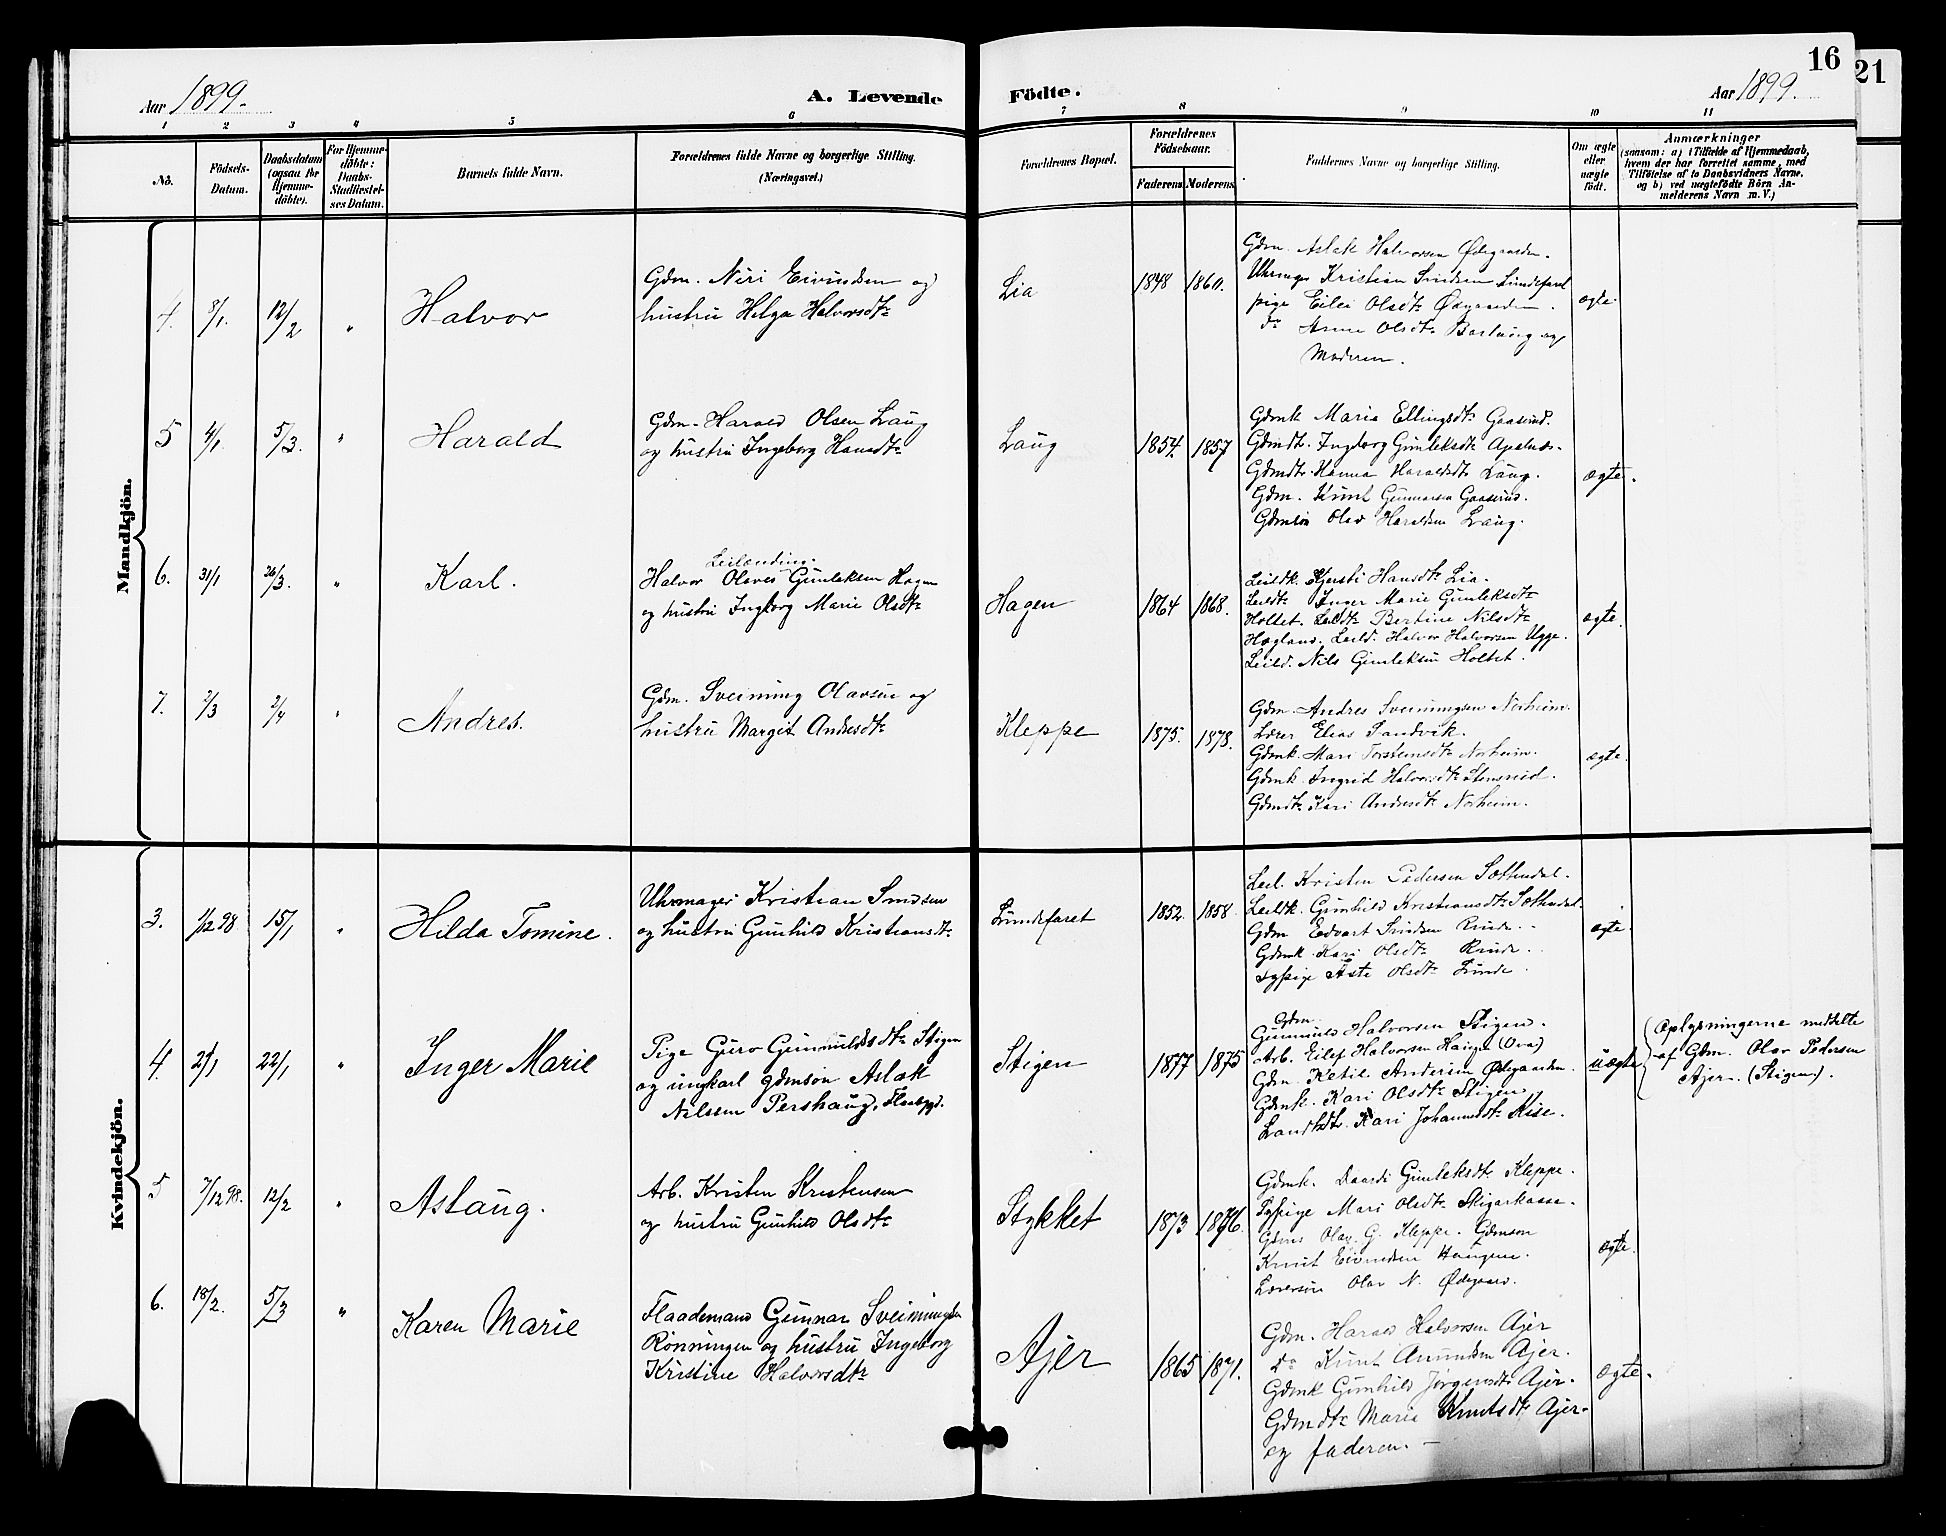 Aar 1899.
A. Levende Födte.
16
21
Aar 1899.
1 2 3 4 5 6 7 8 9 10 11
No.
Födsels-
Datum.
Daabsdatum
(ogsaa for
Hjemme-
döbte).
For Hjemme-
döbte:
Daabs-
Stadfæstel-
ses Datum.
Barnets fulde Navn.
Forældrenes fulde Navne og borgerlige Stilling.
(Næringsvei.)
Forældrenes Bopæl.
Forældrenes
Födselsaar.
Faderens
Moderens
Faddernes Navne og borgerlige Stilling.
Om ægte
eller
uægte
födt.
Anmærkninger
(saasom: a) i Tilfælde af Hjemmedaab,
hvem der har forrettet samme, med
Tilföielse af to Daabsvidners Navne,
og b) ved uægtefödte Börn An-
melderens Navn m. V.)
Mandkjön.
4. 3/1. 12/2 " Halvor
Gdm. Niri Eivindsen og
hustru Helga Halvorsdtr
Lia 1848 1860.
Gdm. Aslak Halvorsen Ødegaarden.
Kristian Svindsen Lundefaret
pige Eilei Olsdtr Øygaarden.
do Anne Olsdtr og
Moderen.
ægte
5 4/1. 5/3. " Harald
Gdm. Harald Olsen Laug
og hustru Ingeborg Hansdtr
Laug 1854. 1857
Gdmk Maria Ellingsdtr Gaasrud.
Gdmdtr. Ingeborg Gunleksdtr
Gdmdtr. Hanna Haraldsdtr Laug.
Gdm. Knut Gunnarsen Gaasrud.
Gdmsön Olav Haraldsen Laug.
ægte.
6. 31/1 26/3. " Karl.
Leilending.
Halvor Olaves Gunleksen Hagen
og hustru Ingborg Marie Olsdtr
Hagen 1864 1868.
Leildk. Kjersti Hansdtr Lia.
Leildtr Inger Marie Gunleksdtr
Holtet. Leildtr Bertine Nilsdtr
Hogland. Leild. Halvor Halvorsen Ugge.
Leild. Nils Gunleksen Holtet.
ægte.
7. 2/3 2/4 " Andres.
Gdm. Sveinung Olavsen og
hustru Margit Andresdtr
Kleppe 1875. 1878.
Gdm. Andres Sveinungsen Norheim.
Lærer Elias Sandvik.
Gdmk. Mari Torsteinsdtr Norheim.
Gdmk. Ingrid Halvorsdtr Stensrud.
Gdmdtr. Kari Andresdtr Norheim.
ægte.
Kvindekjön.
3. 1/12 98 15/1 " Hilda Tomine.
Uhrmager Kristian Svindsen
og hustru Gunhild Kristiansdtr
Lundefaret 1852. 1858.
Leil. Kristen Pedersen Sottendal.
Leildk. Gunhild Kristiansdtr Sottendal.
Gdm Edvart Svindsen Rinde.
Gdmk. Kari Olsdtr Rinde.
Typige Aste Olsdtr Lunde.
ægte.
4. 2/1 22/1 " Inger Marie
Pige Guro Gunnuldsdtr Stigen
og ungkarl gdmsön Aslak
Nilssen Pershaug, Flaabygd.
Stigen 1877 1875
Gdm.
Gunnuld Halvorsen Stigen.
Arb. Eilef Halvorsen Haugen (Ova)
Gdm. Ketil Andersen Ødegaarden.
Gdmk. Kari Olsdtr Stigen
Landhdtr. Kari Johannesdtr Kise.
uægte
Oplysningerne meddelte
af Gdm. Olav Pedersen
Ajer. (Stigen).
5 7/12 98. 12/2 " Aslaug.
Arb. Kristen Kristensen
og hustru Gunhild Olsdtr
Stykket 1873 1876.
Gdmk. Daardi Gunleksdtr Kleppe.
Typige Mari Olsdtr Skigarkaase.
Gdms Olav G. Kleppe. Gdmsön
Knut Eivindsen Haugene.
Olav N. Ødegaard.
ægte.
6. 18/2. 5/3 " Karen Marie
Flaademand Gunnar Sveinungsen
Rönningen og hustru Ingeborg
Kirstine Halvorsdtr
Ajer 1865 1871.
Gdm. Harald Halvorsen Ajer
do Knut Amundsen Ajer.
Gdmk Gunhild Jorgensdtr Ajer.
Gdmdtr Maria Knutsdtr Ajer.
og faderen. —
ægte.